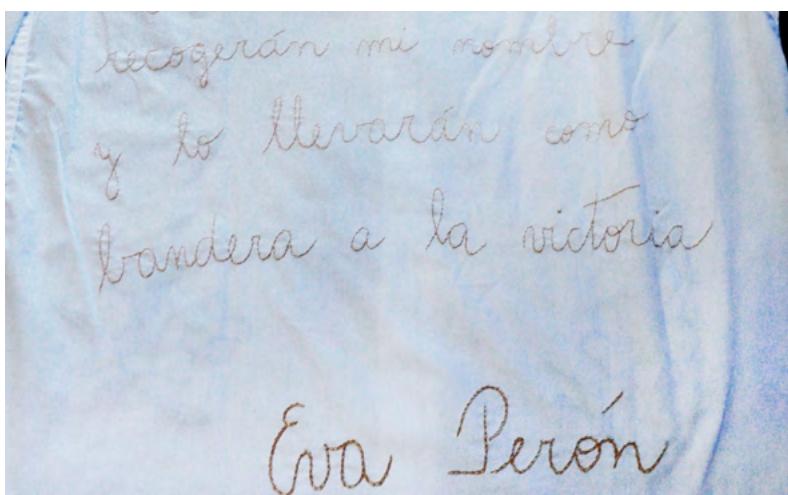 recogerán mi nombre
y lo llevarán como
bandera a la victoria
Eva Perón